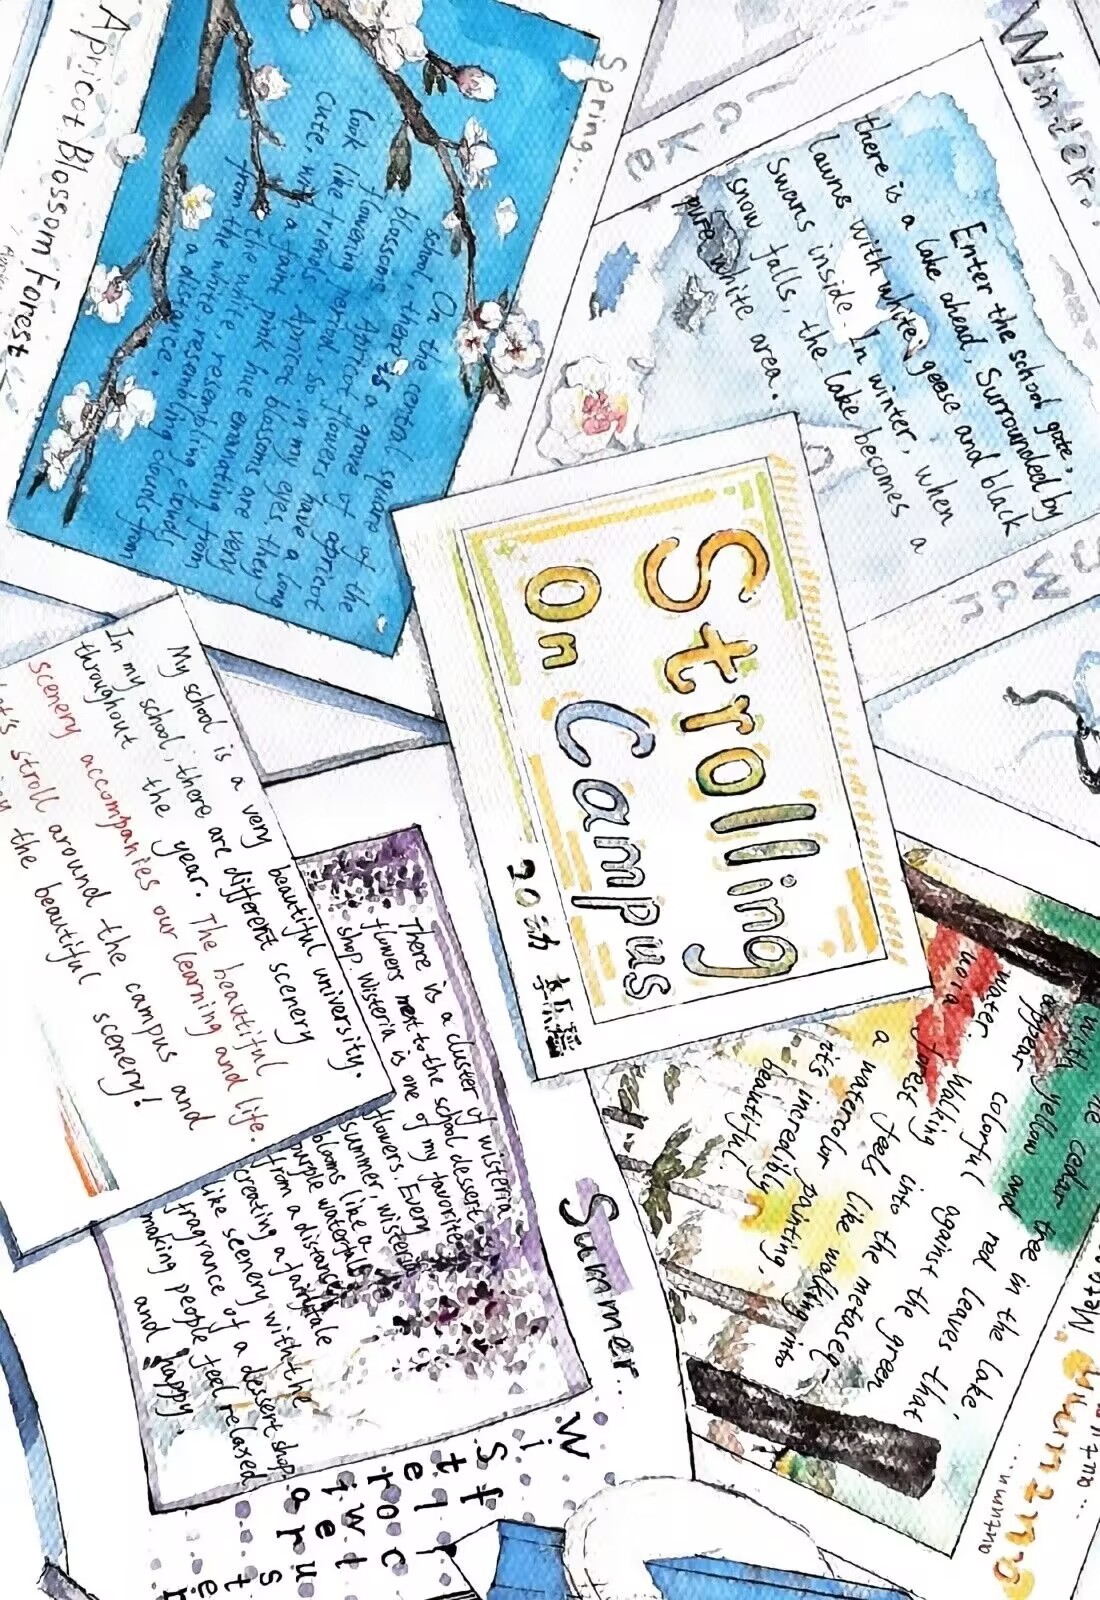 Strolling
On Campus
20动
My school is a very beautiful university.
In my school, there are different scenery
throughout the year. The beautiful
scenery accompanies our learning and life.
let's stroll around the campus and
the beautiful scenery!
Spring...
On the central square of the
school, there is a grove of apricot
blossoms. Apricot flowers have a long
flowering period, so in my eyes, they
look like friends. Apricot blossoms are very
cute, with a faint pink hue emanating from
the white, resembling clouds
from the white, resembling clouds from
a distance.
Apricot Blossom Forest
Winter.
Enter the school gate,
there is a lake ahead, Surrounded by
lawns with white geese and black
Swans inside. In winter, when
snow falls, the lake becomes a
pure white area.
Swan
lake
Summer...
There is a cluster of wisteria
flowers next to the school dessert
shop. Wisteria is one of my favorite
flowers. Every
summer, wisteria
blooms like a
purple waterfall
from a distance,
creating a fairytale
like scenery with the
fragrance of a dessert shop,
making people feel relaxed
and happy.
Wisteria
flower
autumn...
the cedar tree in the lake,
with yellow and red leaves that
appear colorful against the green
water. Walking into the metaseq-
uoia forest feels like walking into
a watercolor painting,
it's incredibly
beautiful.